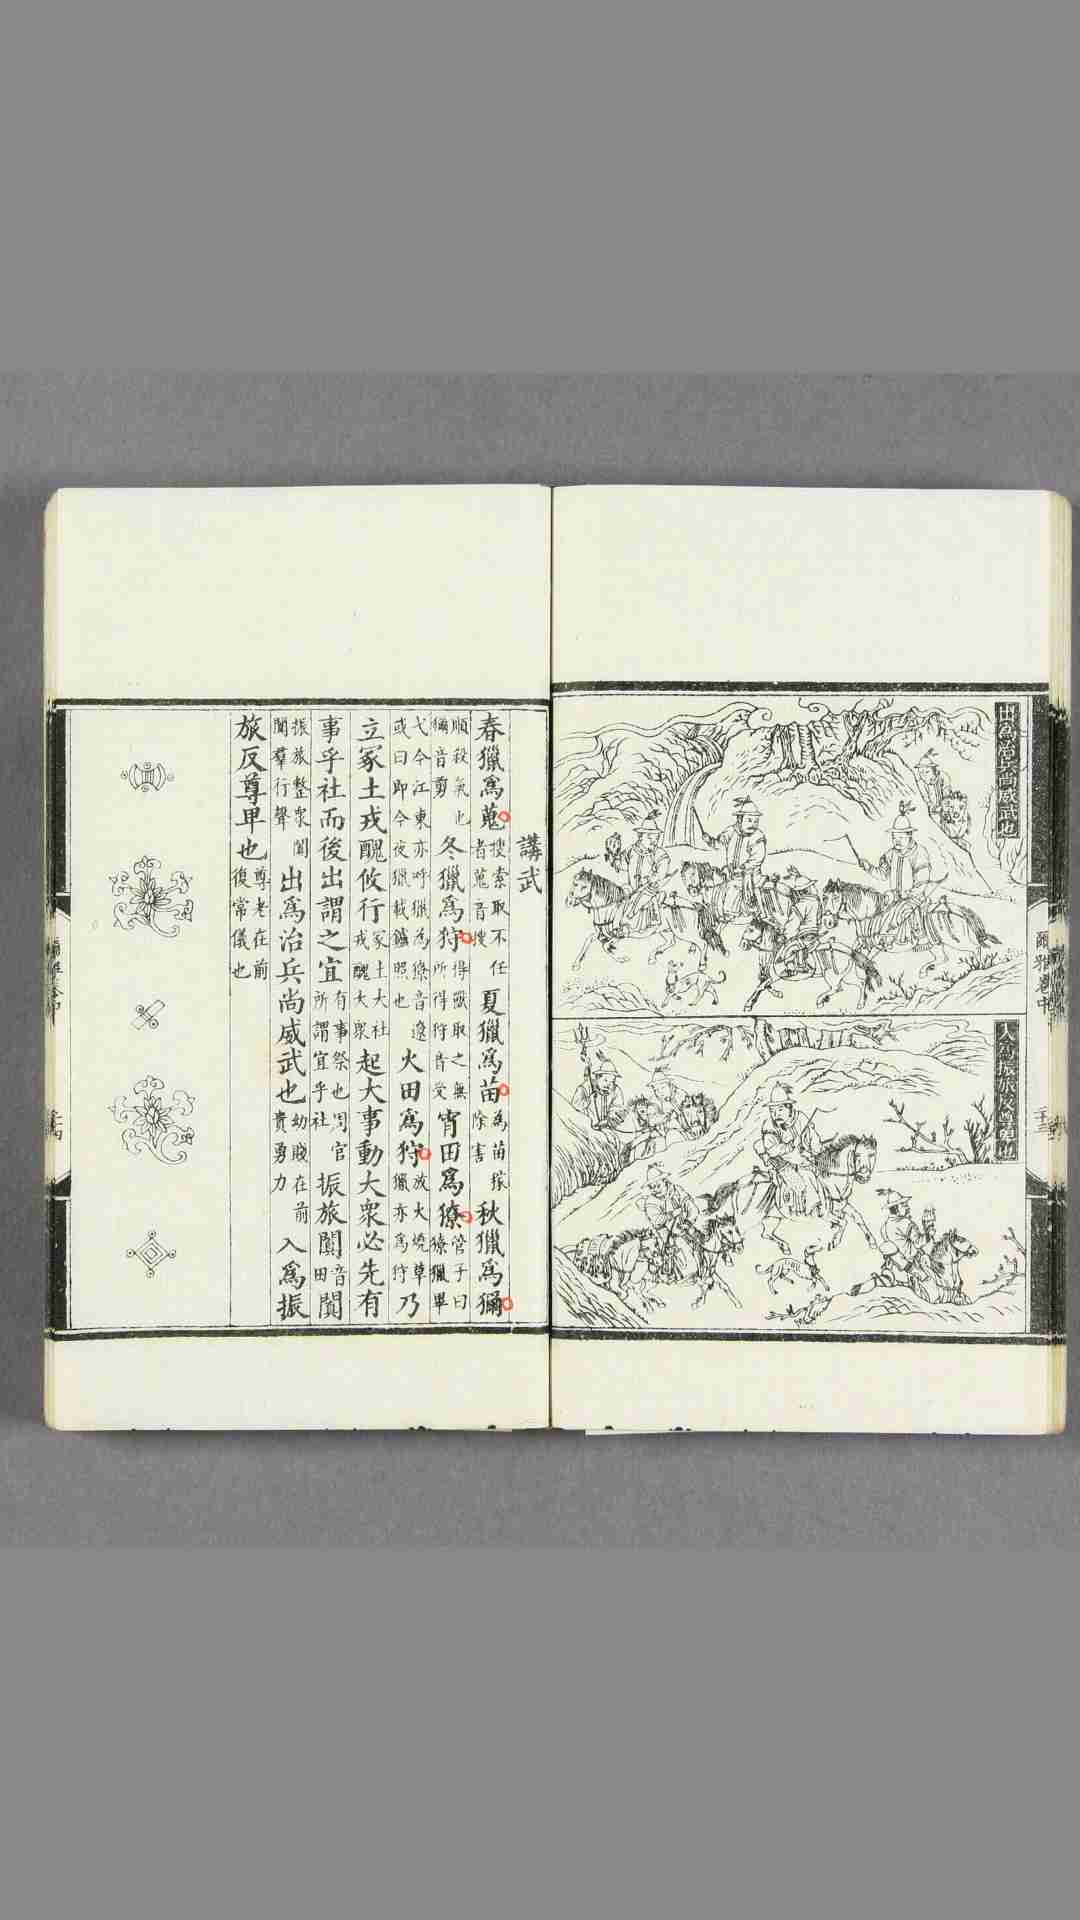 出爲治兵尚威武也
入爲振旅反尊卑也
爾雅卷中
講武
春獵爲蒐搜索取不任者蒐音搜夏獵爲苗爲苗稼除害秋獵爲獮
順殺氣也獮音剪冬獵爲狩得獸取之無所得狩音受宵田爲獠管子曰獠獵畢
弋今江東亦呼獵爲獠音遼或曰即今夜獵載鑪照也火田爲狩放火燒草獵亦爲狩乃
立冢土戎醜攸行冢土大社戎醜大衆起大事動大衆必先有
事乎社而後出謂之宜有事祭也周官所謂宜乎社振旅闐音田闐
振旅整衆闐闐羣行聲出爲治兵尚威武也幼賤在前貴勇力入爲振
旅反尊卑也尊老在前復常儀也